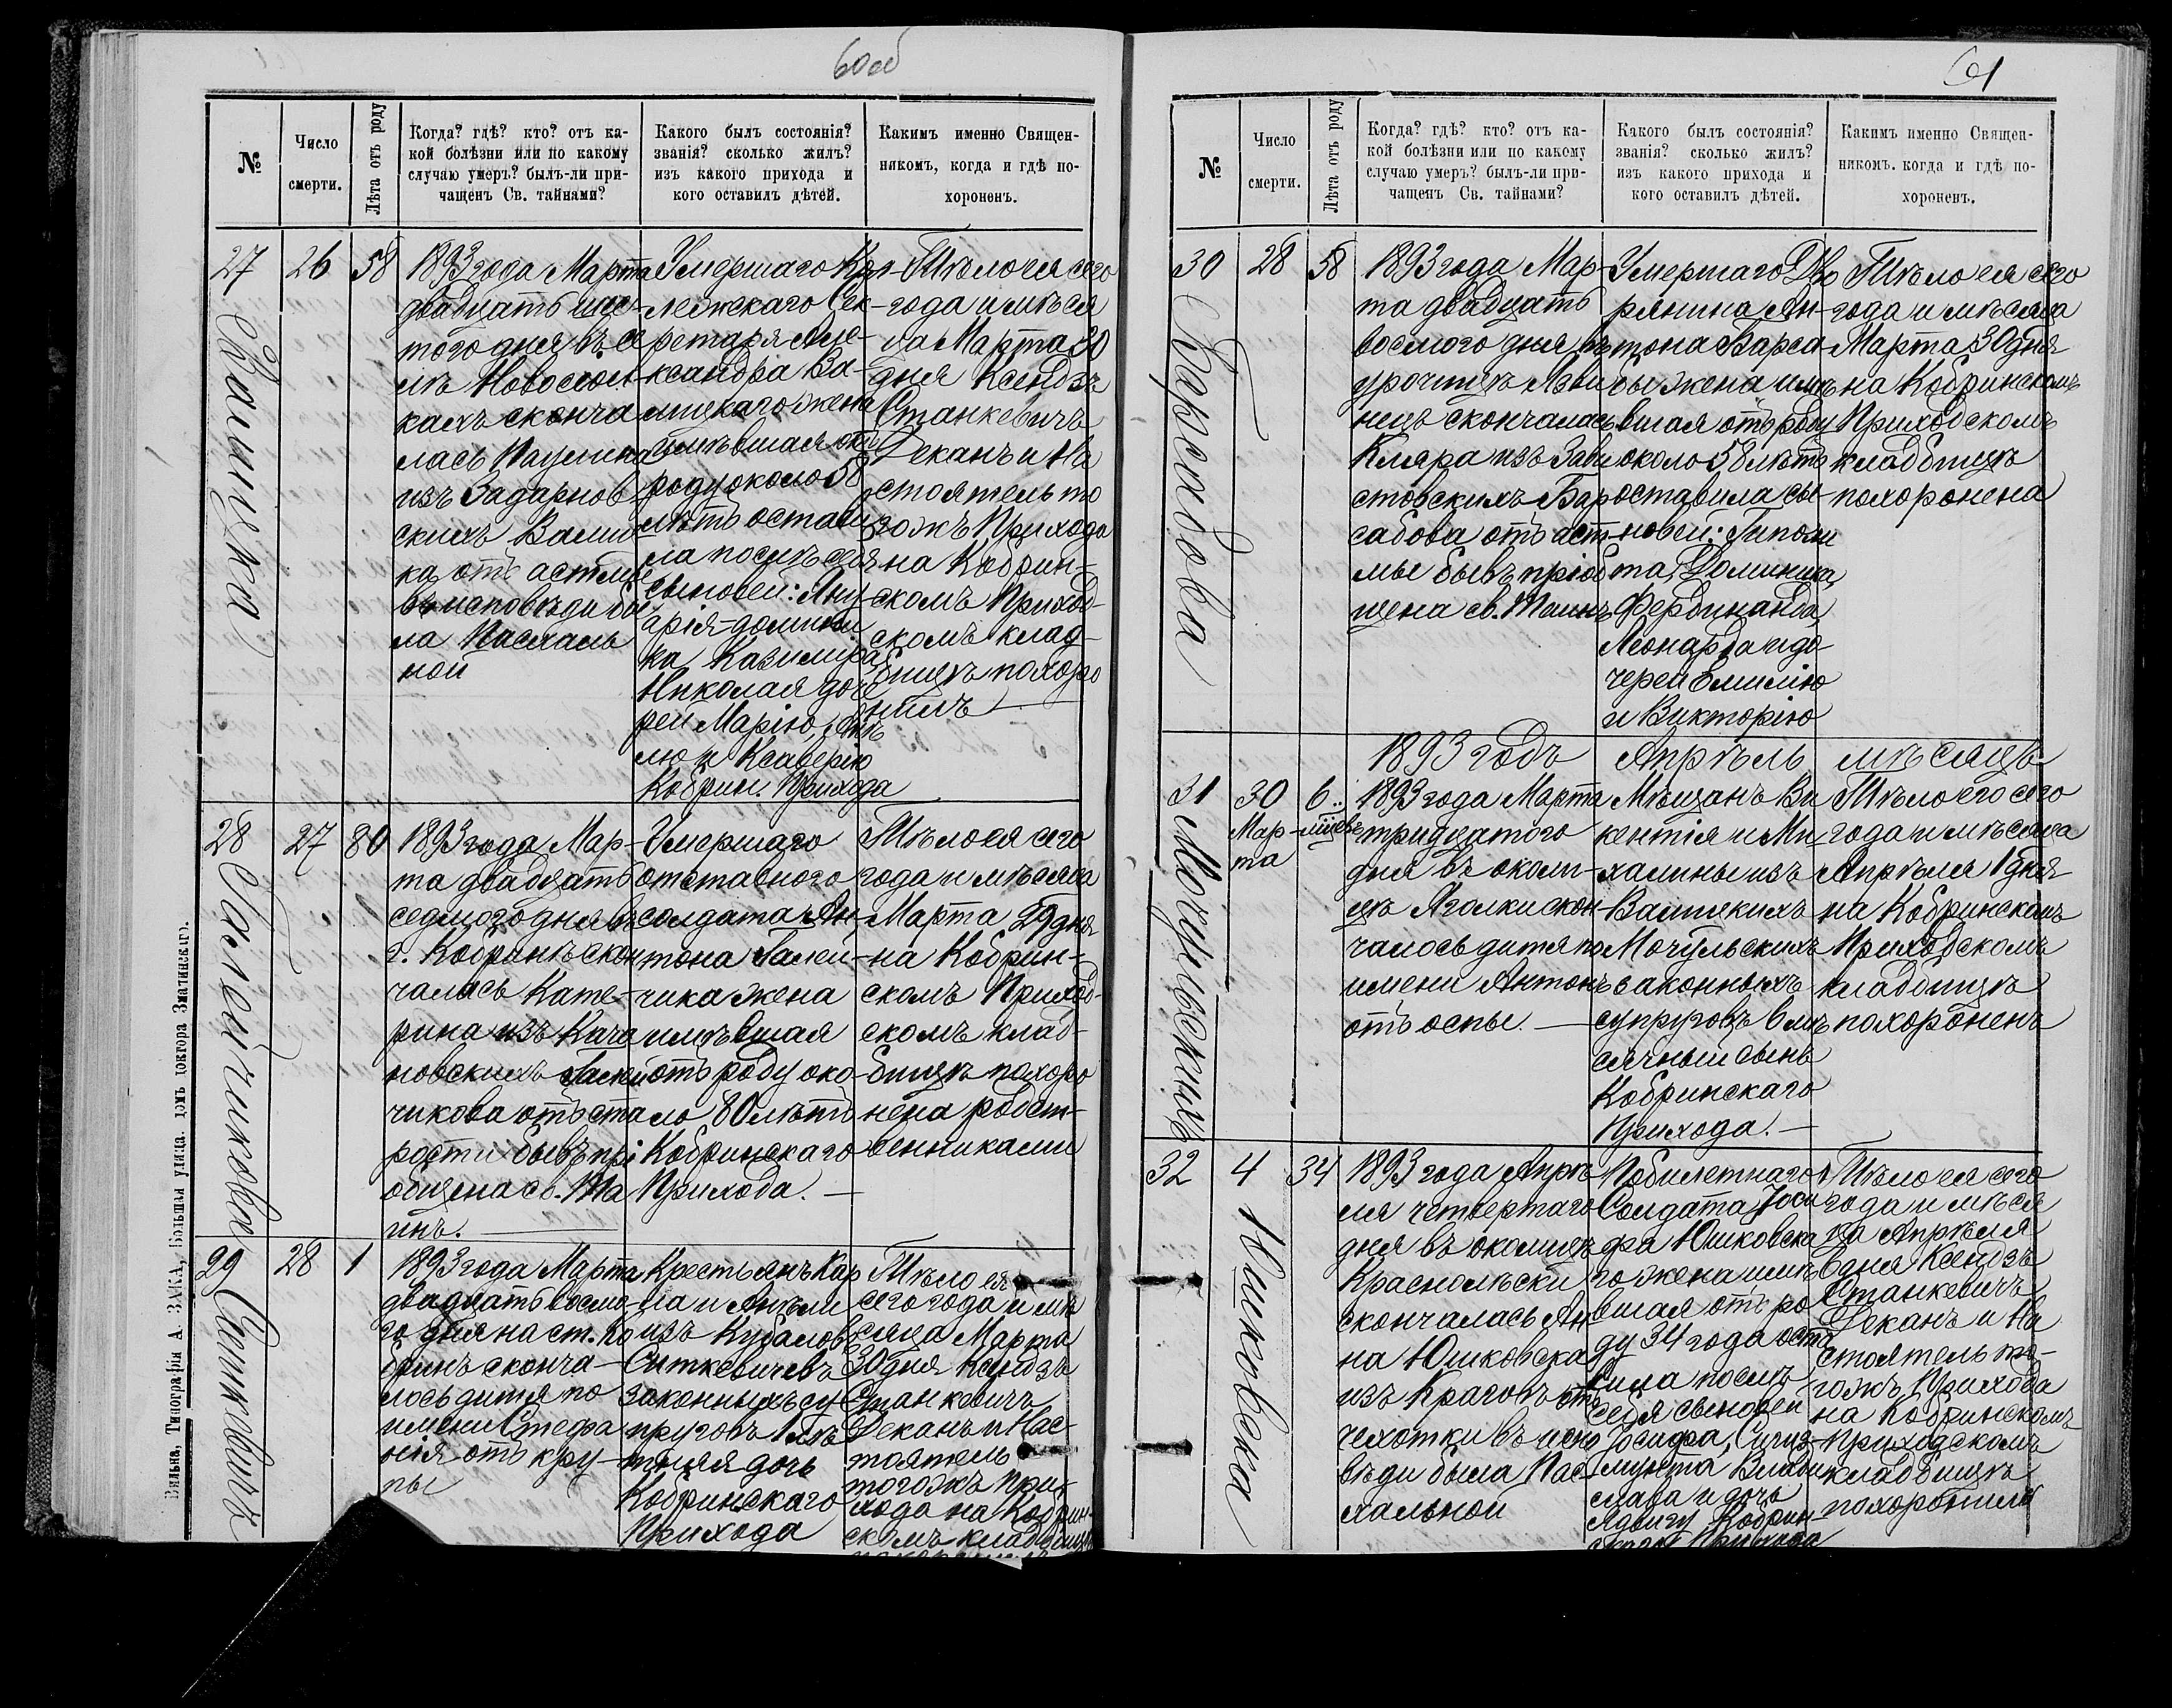 60об
№
Число
смерти.
Лѣта отъ роду
Когда? гдѣ? кто? отъ ка-
кой болѣзни или по какому
случаю умеръ? былъ-ли при-
чащенъ Св. тайнами?
Какого былъ состоянія?
званія? сколько жилъ?
изъ какого прихода и
кого оставилъ дѣтей.
Какимъ именно Священ-
никомъ, когда и гдѣ по-
хороненъ.
27
26
58
Валицка
1893 года Марта
двадцать шес-
того дня въ се
лѣ Новосiол
кахъ сконча
лась Паулина
изъ Задарнов
скихъ Валиц
ка отъ астмы
въ исповѣди бы
ла Пасхаль
ной
Умершаго Кол-
лежскаго Сек-
ретаря Але-
ксандра Ва-
лицкаго жена
имѣвшая отъ
роду около 58
лѣтъ остави
ла послѣ себя
сыновей: Яну-
арія-домини
ка, Казимира
Николая доче
рей Марію, Анѣ
лю и Ксаверію
Кобрин. Прихода
Тѣло ея сего
года и мѣся
ца Марта 30
дня Ксендзъ
Станкевичъ
Деканъ и На
стоятель то
гожъ Прихода
на Кобрин-
скомъ Приход-
скомъ клад-
бищѣ похоро
нилъ
28
27
80
Галейчикова
1893 года Мар-
та двадцать
седмого дня въ
г. Кобринѣ скон
чалась Кате-
рина изъ Кача
новскихъ Галей
чикова отъ ста
рости бывъ прі
общена св. Та
инъ.
Умершаго
отставного
солдата Ан-
тона Галей-
чика жена
имѣвшая
отъ роду око-
ло 80 лѣтъ
Кобринскаго
Прихода.
Тѣло ея сего
года и мѣсяца
Марта 29 дня
на Кобрин-
скомъ Приход-
скомъ клад-
бищѣ похоро
нена родст-
венниками
29
28
1
Ситкевичъ
1893 года Марта
двадцать восмо-
го дня на ст. Ко
бринъ сконча-
лось дитя по
имени Стефа
нія отъ кру-
пы
Крестьянъ Кар
ла и Анѣли
изъ Кубаловъ
Ситкевичевъ
законныхъ су-
пруговъ 1 лѣ
тняя дочь
Кобринскаго
Прихода
Тѣло ея
сего года и мѣ
сяца Марта
30 дня Ксендзъ
Станкевичъ
Деканъ и Нас-
тоятель
тогожъ При-
хода на Кобрин-
скомъ кладбищѣ
Вильна, Типографія А. ЗАКА, Большая улица, домъ доктора Зматинскаго.
61
№
Число
смерти.
Лѣта отъ роду
Когда? гдѣ? кто? отъ ка-
кой болѣзни или по какому
случаю умеръ? былъ-ли при-
чащенъ Св. тайнами?
Какого былъ состоянія?
званія? сколько жилъ?
изъ какого прихода и
кого оставилъ дѣтей.
Какимъ именно Священ-
никомъ. когда и гдѣ по-
хороненъ.
30
28
58
Барсабова
1893 года Мар-
та двадцать
восмого дня въ
урочищѣ Язви
нецъ скончалась
Кляра изъ Зави
стовскихъ Бар
сабова отъ аст-
мы бывъ пріоб
щена св. Таинъ
Умершаго Дво
рянина Ан-
тона Барса
бы жена имѣ
вшая отъ роду
около 58 лѣтъ
оставила сы-
новей: Гиполи
та, Доминика,
Фердинанда,
Леонарда и до
черей Емилію
и Викторію
Тѣло ея сего
года и мѣсяца
Марта 30 дня
на Кобринскомъ
Приходскомъ
кладбищѣ
похоронена
1893 годъ Апрѣль мѣсяцъ
31
30
Мар-
та
6
Могульскихъ
1893 года Марта
тридцатого
дня въ околи-
цѣ Яголки скон
чалось дитя по
имени Антонъ
отъ оспы.
Мѣщанъ Ви
кентія и Ми
халины изъ
Валицкихъ
Могульскихъ
законныхъ
супруговъ 6 мѣ
сячный сынъ
Кобринскаго
Прихода.
Тѣло его сего
года и мѣсяца
Апрѣля 1 дня
на Кобринскомъ
Приходскомъ
кладбищѣ
похороненъ
32
4
34
Юшковска
1893 года Апрѣ
ля четвертаго
дня въ околицѣ
Краснолѣски
скончалась Ан
на Юшковска
изъ Краговъ отъ
чехотки въ испо
вѣди была Пас
хальной
Побилетнаго
Солдата Іоси
фа Юшковска
го жена имѣ
вшая отъ ро
ду 34 года оста
вила послѣ
себя сыновей
Іосифа, Сигиз-
мунта, Влади
слава и дочь
Ядвигу Кобрин
скаго Прихода
Тѣло ея сего
года и мѣся
ца Апрѣля
6 дня Ксендзъ
Станкевичъ
Деканъ и На
стоятель то-
гожъ Прихода
на Кобринскомъ
приходскомъ
кладбищѣ
похоронилъ